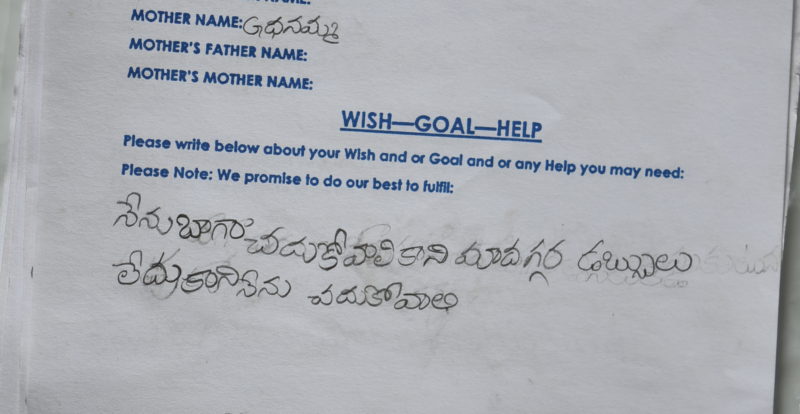 MOTHER NAME:
MOTHER'S FATHER NAME:
MOTHER'S MOTHER NAME:
WISH—GOAL—HELP
Please write below about your Wish and or Goal and or any Help you may need:
Please Note: We promise to do our best to fulfil:
నేను బాగా చదుకోవాలి కాని మాదగ్గర డబ్బులు
లేదు కాని నేను చదుకోవాలి